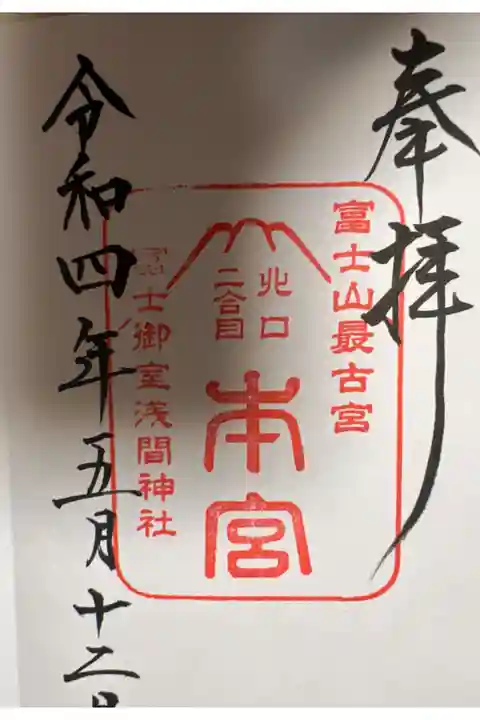 奉拝
富士山最古宮
北口
二合目
本宮
富士御室浅間神社
令和四年五月十二日